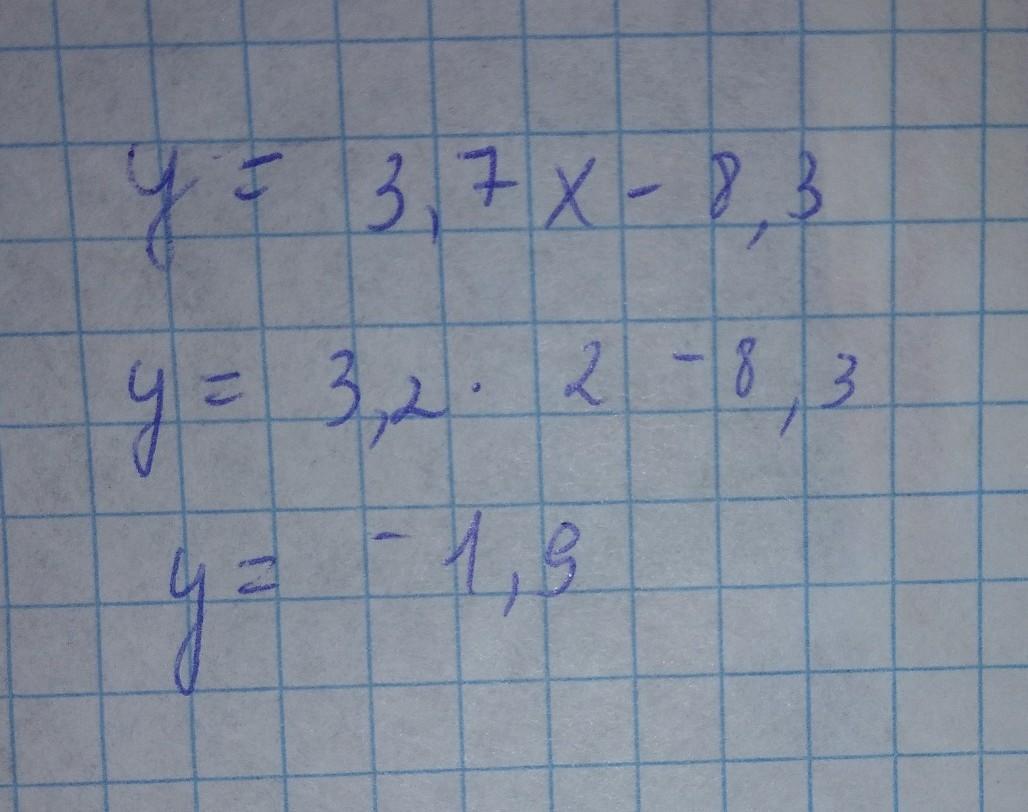 y = 3,7x - 8,3
y = 3,2 · 2 - 8,3
y = - 1,9